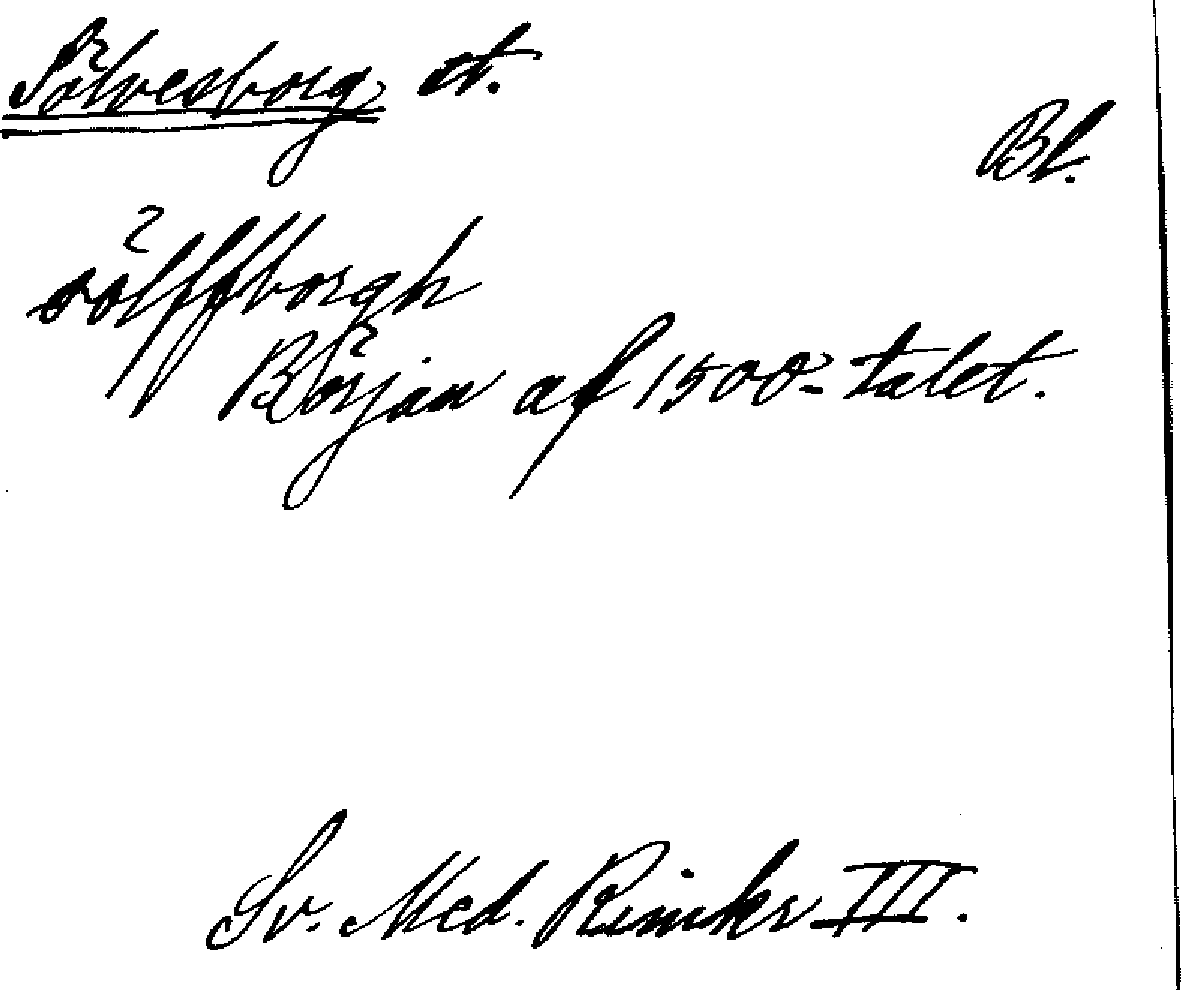 Sölvesborg, st.
Bl.
sölffborgh
Början af 1500-talet.
Sv. Med. Rimkr III.